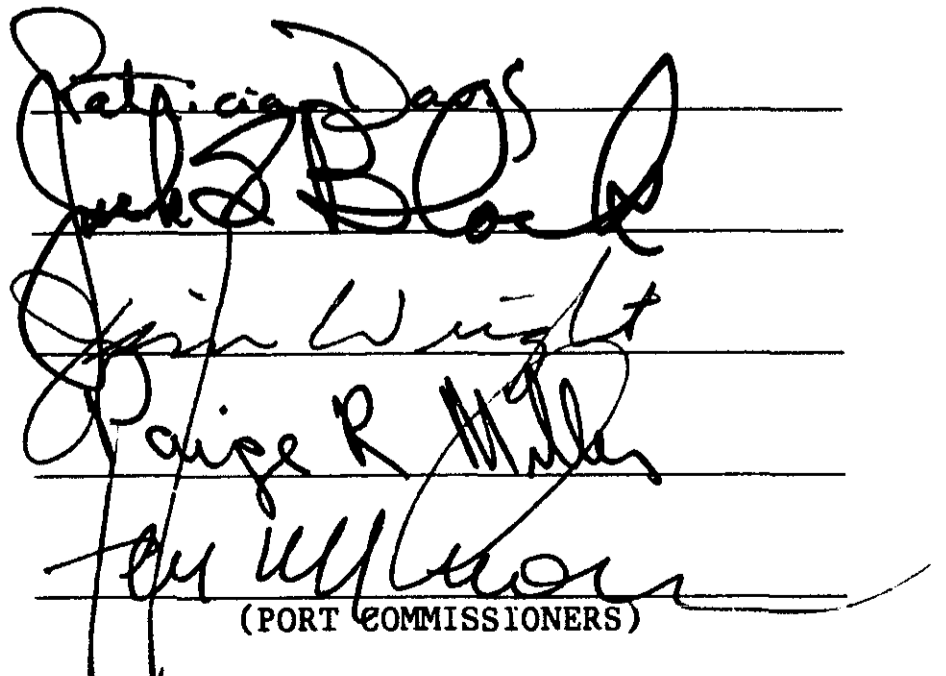 Patricia Davis
Jack S Block
Jim Wright
Paige R Miller
(PORT COMMISSIONERS)